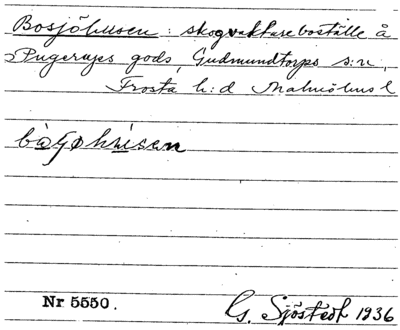 Bosjöhusen: skogvaktareboställe å
Pugerups gods, Gudmundtorps s:n,
Frosta h:d Malmöhus l
Nr 5550.
G. Sjöstedt 1936